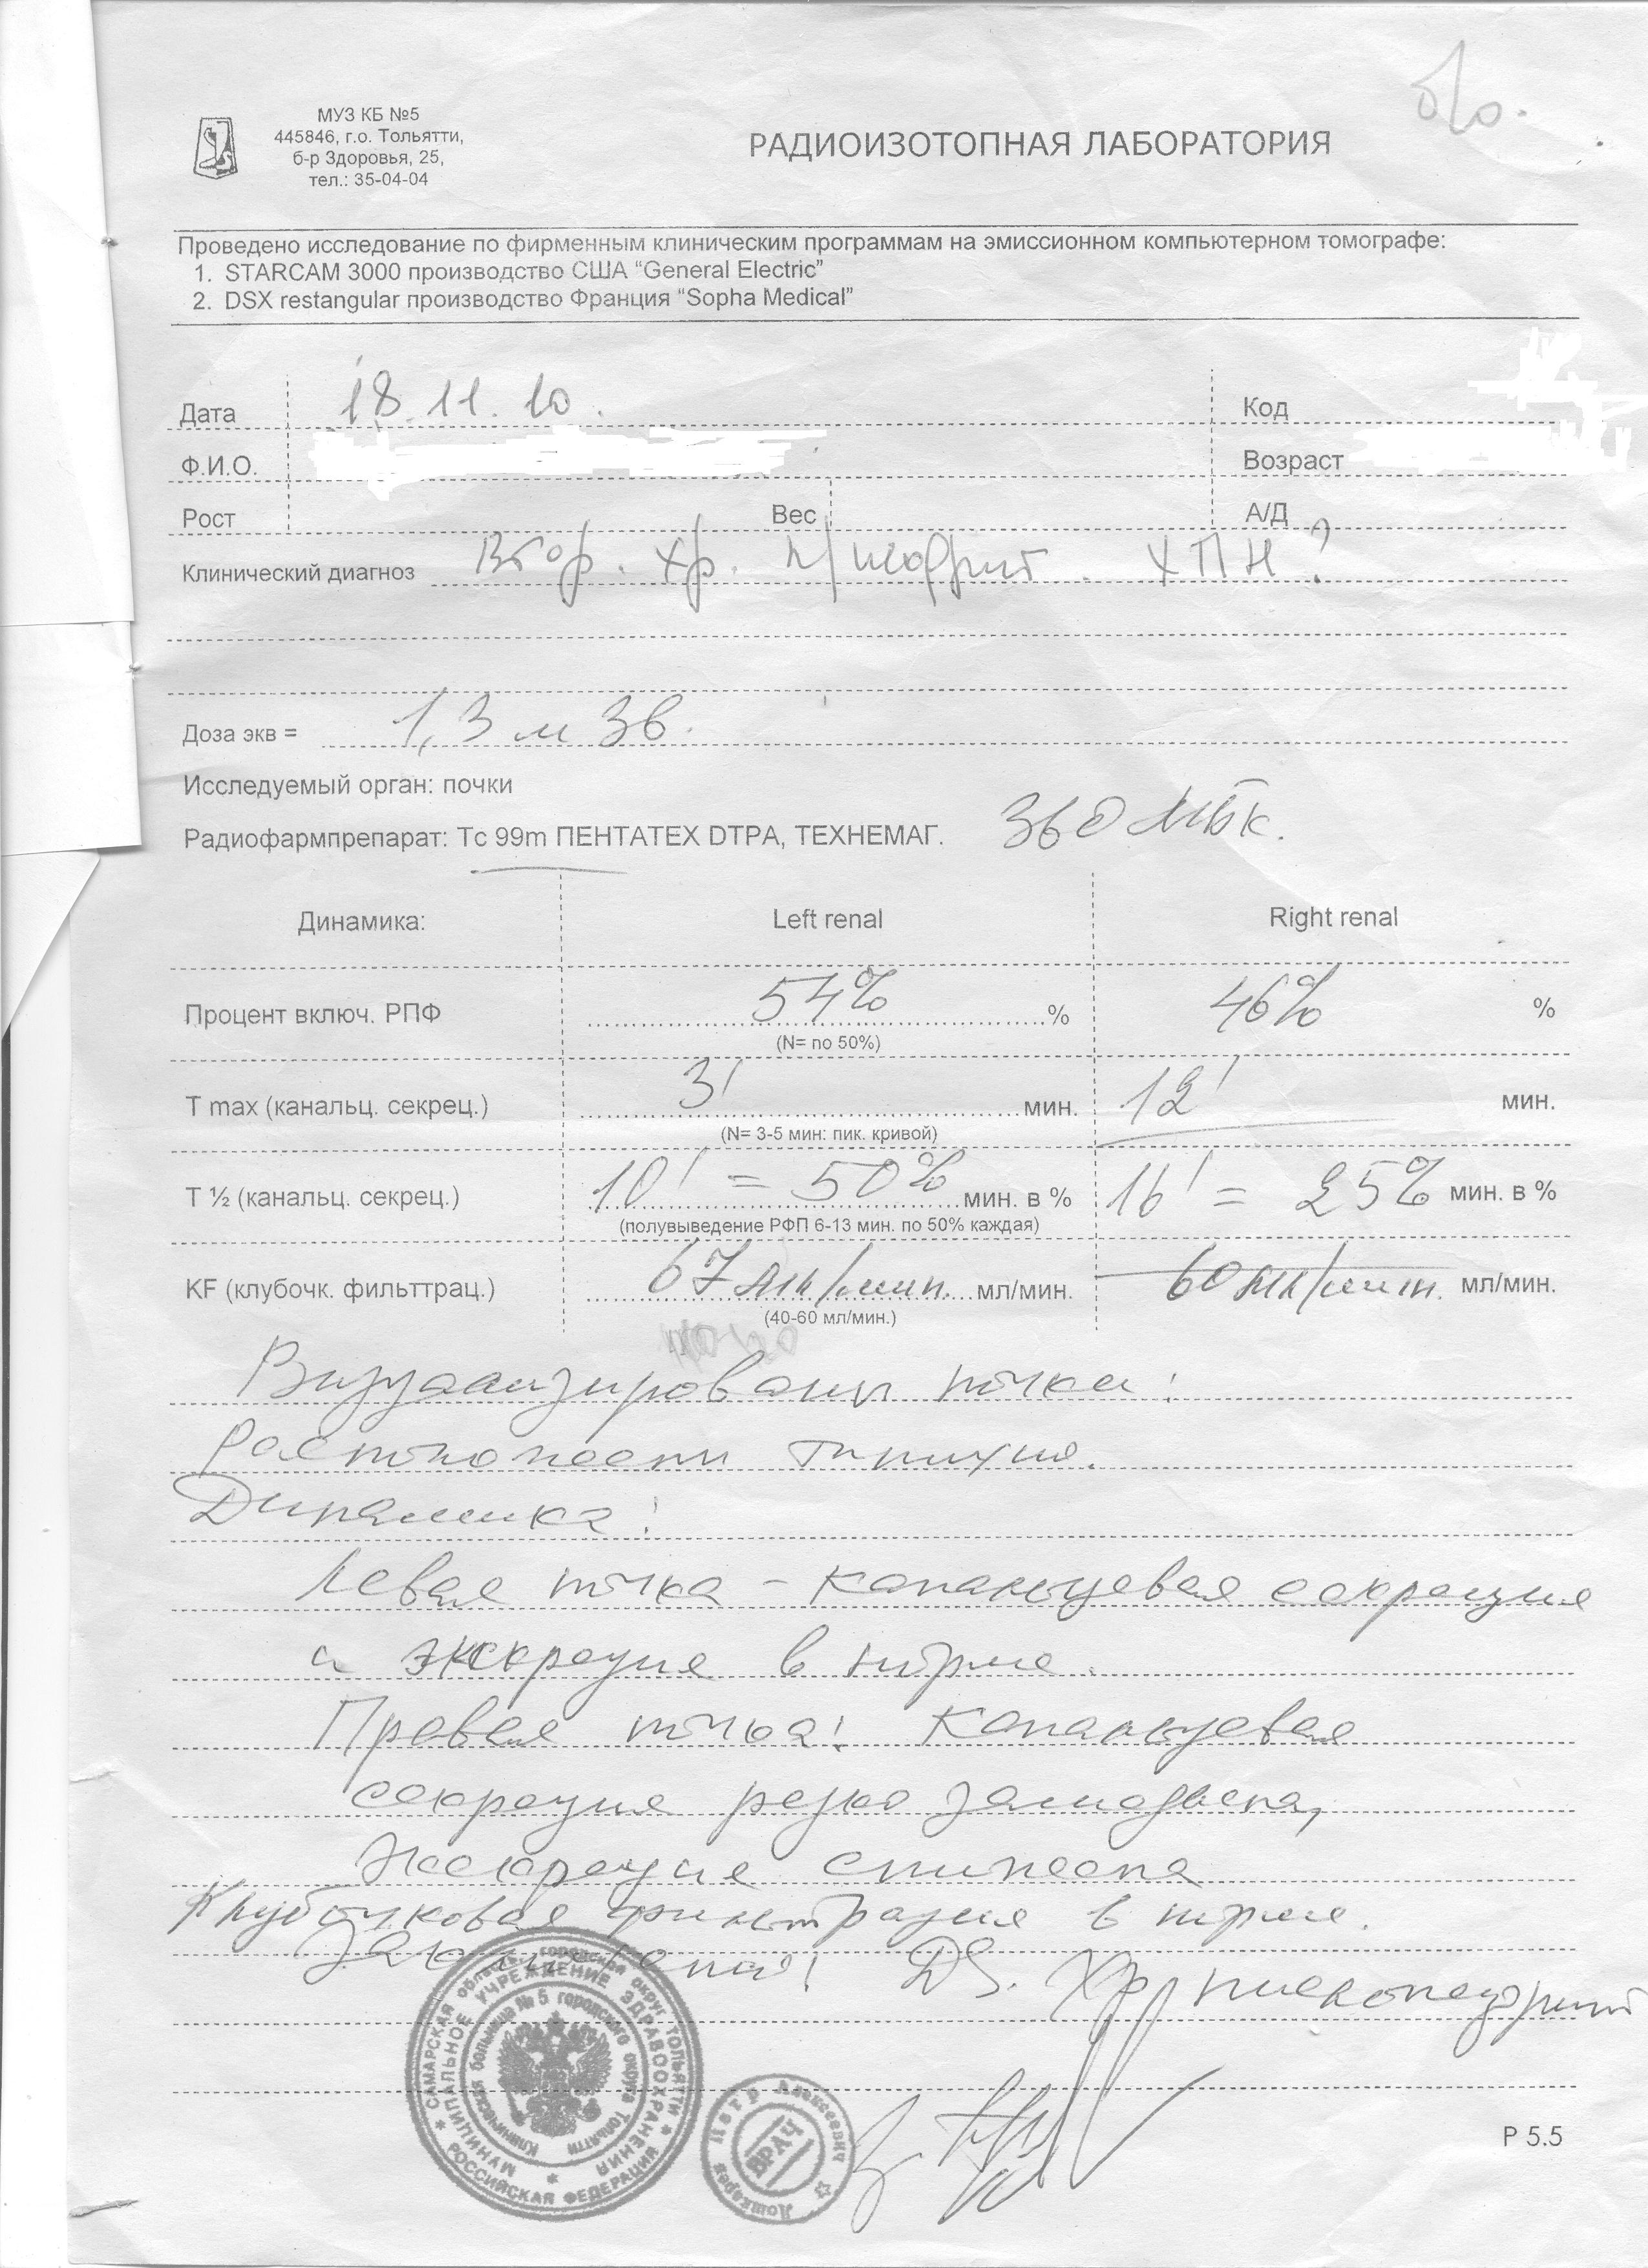 б/о.
МУЗ КБ №5
445846, г.о. Тольятти,
б-р Здоровья, 25,
тел.: 35-04-04
РАДИОИЗОТОПНАЯ ЛАБОРАТОРИЯ
Проведено исследование по фирменным клиническим программам на эмиссионном компьютерном томографе:
1. STARCAM 3000 производство США “General Electric”
2. DSX restangular производство Франция “Sopha Medical”
Дата 18.11.10. Код
Ф.И.О. Возраст
Рост Вес А/Д
Клинический диагноз Втор. хр. п/нефрит. ХПН?
Доза экв = 1,3 м Зв.
Исследуемый орган: почки
Радиофармпрепарат: Тс 99m ПЕНТАТЕХ DTPA, ТЕХНЕМАГ. 360 МБк.
Динамика: Left renal Right renal
Процент включ. РПФ 54% % 46% %
(N= по 50%)
T max (канальц. секрец.) 3' мин. 12' мин.
(N= 3-5 мин: пик. кривой)
T ½ (канальц. секрец.) 10' = 50% мин. в % 16' = 25% мин. в %
(полувыведение РФП 6-13 мин. по 50% каждая)
KF (клубочк. фильттрац.) 67 мл/мин. мл/мин. 60 мл/мин. мл/мин.
(40-60 мл/мин.)
Визуализированы почки:
Расположены типично.
Динамика:
Левая почка - канальцевая секреция
и экскреция в норме.
Правая почка: Канальцевая
секреция резко замедлена,
Экскреция снижена
Клубочковая фильтрация в норме.
Заключение: DS. Хр. пиелонефрит
САМАРСКАЯ область, городской округ ТОЛЬЯТТИ
РОССИЙСКАЯ ФЕДЕРАЦИЯ
МУНИЦИПАЛЬНОЕ УЧРЕЖДЕНИЕ ЗДРАВООХРАНЕНИЯ
Клиническая больница № 5 городского округа Тольятти
Петр Алексеевич
ВРАЧ
P 5.5